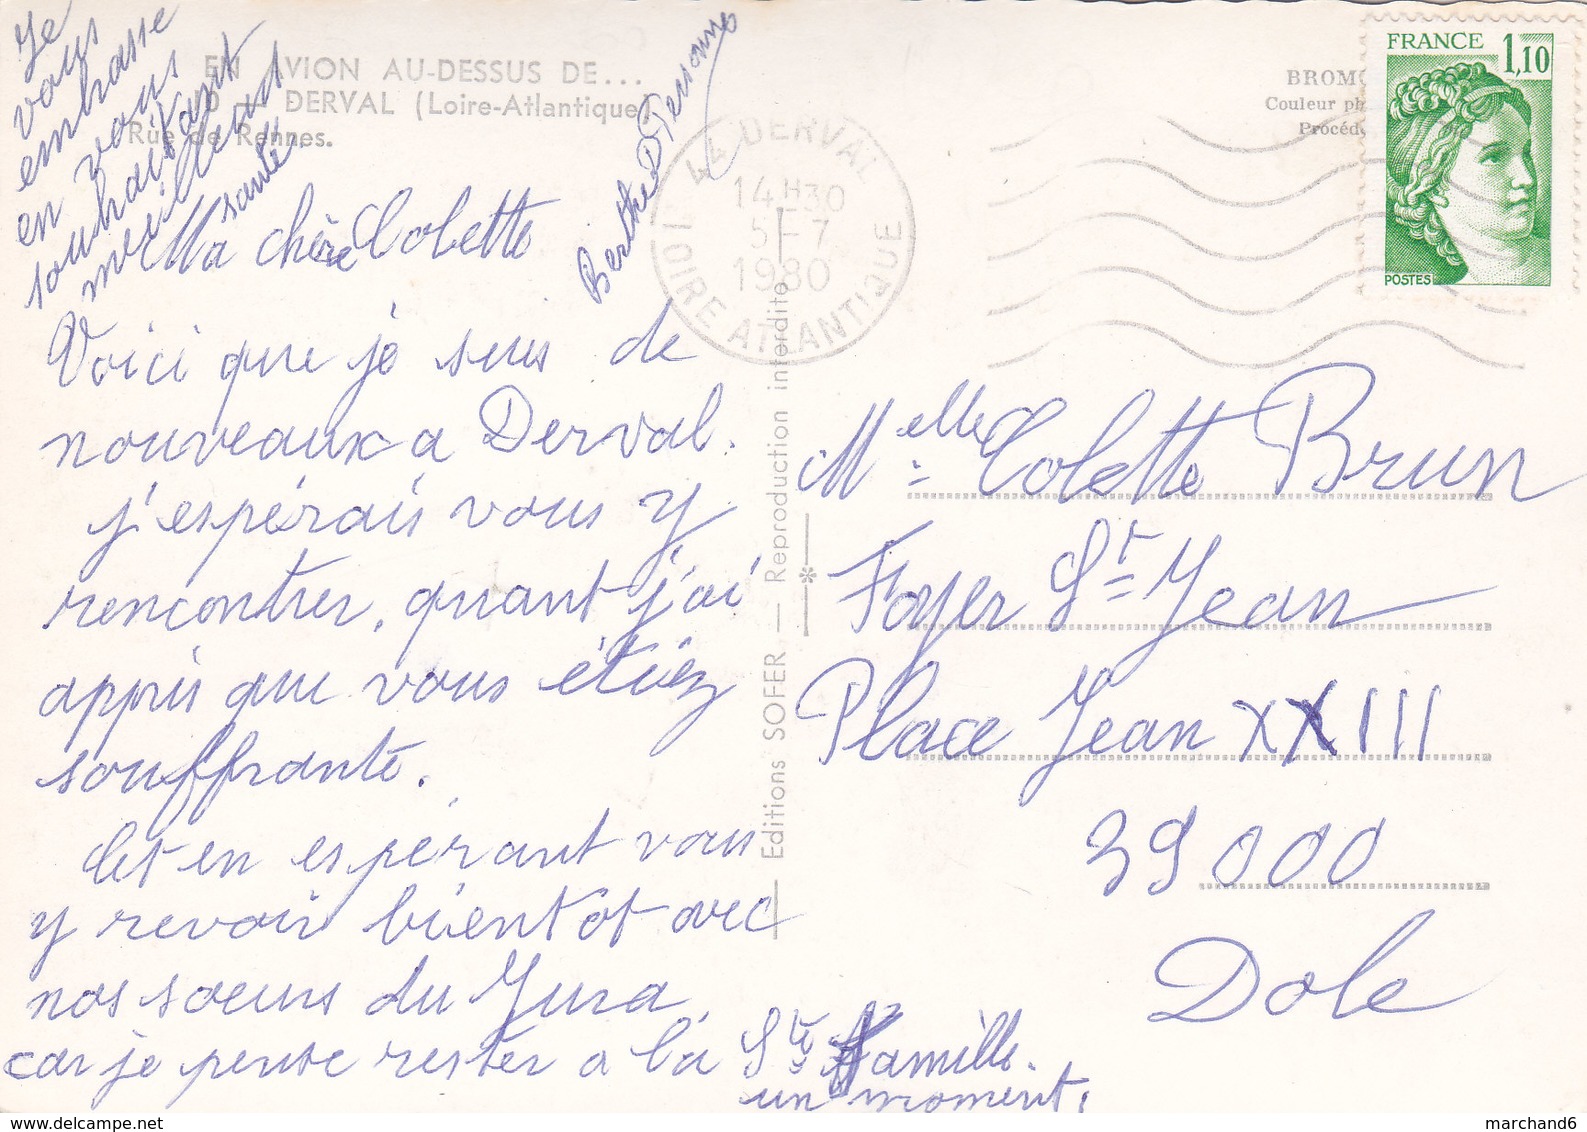 EN AVION AU-DESSUS DE...
DERVAL (Loire-Atlantique)
Rue de Rennes.
Ma chère Colette
Voici que je suis de
nouveaux a Derval.
j'espérais vous y
rencontrer, quant j'ai
appris que vous étiez
souffrante.
Et en espérant vous
y revoir bientot avec
nos soeurs du Jura
car je pense rester a la Ste Famille.
un moment.
Je
vous
embrasse
en vous
souhaitant
meilleure
santé.
Berthe
44 DERVAL
14H30
5-7
1980
LOIRE ATLANTIQUE
FRANCE 1,10
POSTES
BROMO
Couleur ph
Procéd
Editions SOFER — Reproduction interdite
Melle Colette Brun
Foyer St Jean
Place Jean XXIII
39000
Dole
www.marchand6